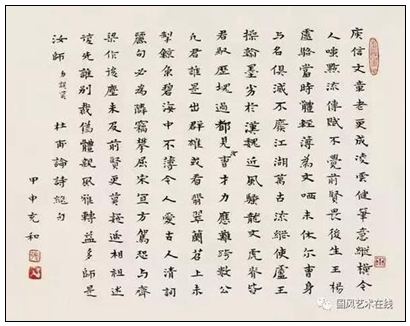 庾信文章老更成凌雲健筆意縱橫今
人嗤點流傳賦不覺前賢畏後生王楊
盧駱當時體輕薄為文哂未休尔曹身
与名俱滅不廢江湖萬古流縱使盧王
操翰墨劣於漢魏近風騷龍文虎脊皆
君馭歷塊過都見曹才力應難跨數公
凡君誰是出群雄或看翡翠蘭苕上未
掣鯨魚碧海中不薄今人愛古人清詞
麗句必為鄰竊攀屈宋宜方駕恐与齊
梁作後塵未及前賢更莫疑遞相祖述
復先誰別裁偽體親風雅轉益多師是
汝師 勿誤莫 杜甫論詩絕句
甲申充和
国风艺术在线